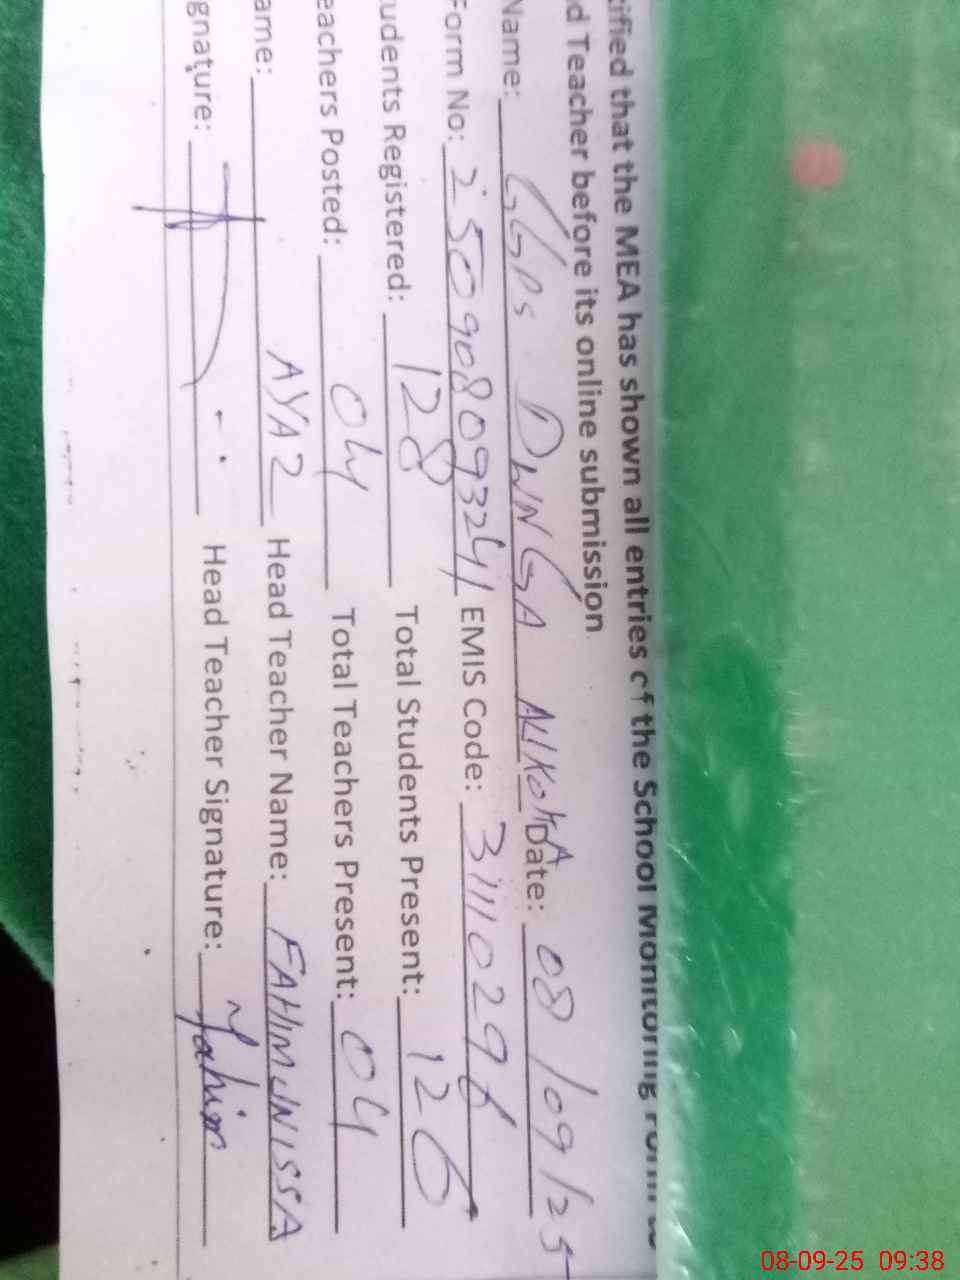 ified that the MEA has shown all entries of the School Monitoring Form to
d Teacher before its online submission.
Name: GGPS DWNGA AKIKOHA Date: 08/09/25
Form No: 250908093241 EMIS Code: 31110296
udents Registered: 128 Total Students Present: 126
eachers Posted: 04 Total Teachers Present: 04
ame: AYAZ Head Teacher Name: FAHIMUNISSA
gnature: Head Teacher Signature: Fahim
08-09-25 09:38